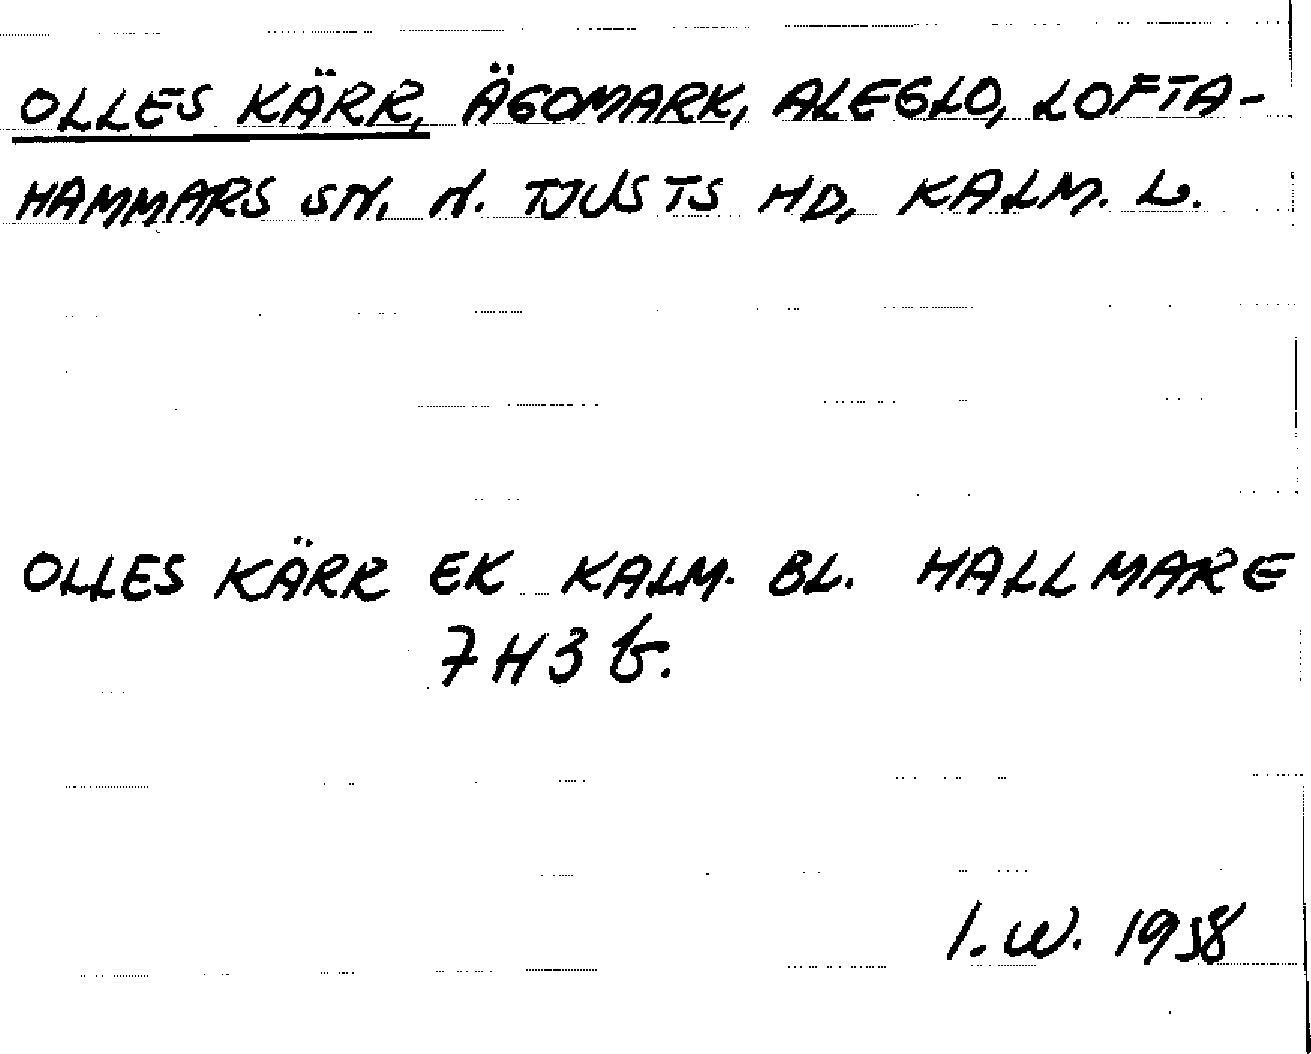 OLLES KÄRR, ÄGOMARK, ALEGLO, LOFTA-
HAMMARS SN. N. TJUSTS HD, KALM. L.
OLLES KÄRR EK KALM. BL. HALLMARE
7H3 b.
I.W. 1958